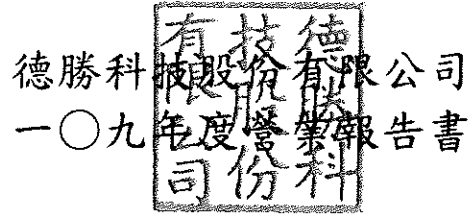 德勝科技股份有限公司
一○九年度營業報告書
德勝科
技股份
有限公司